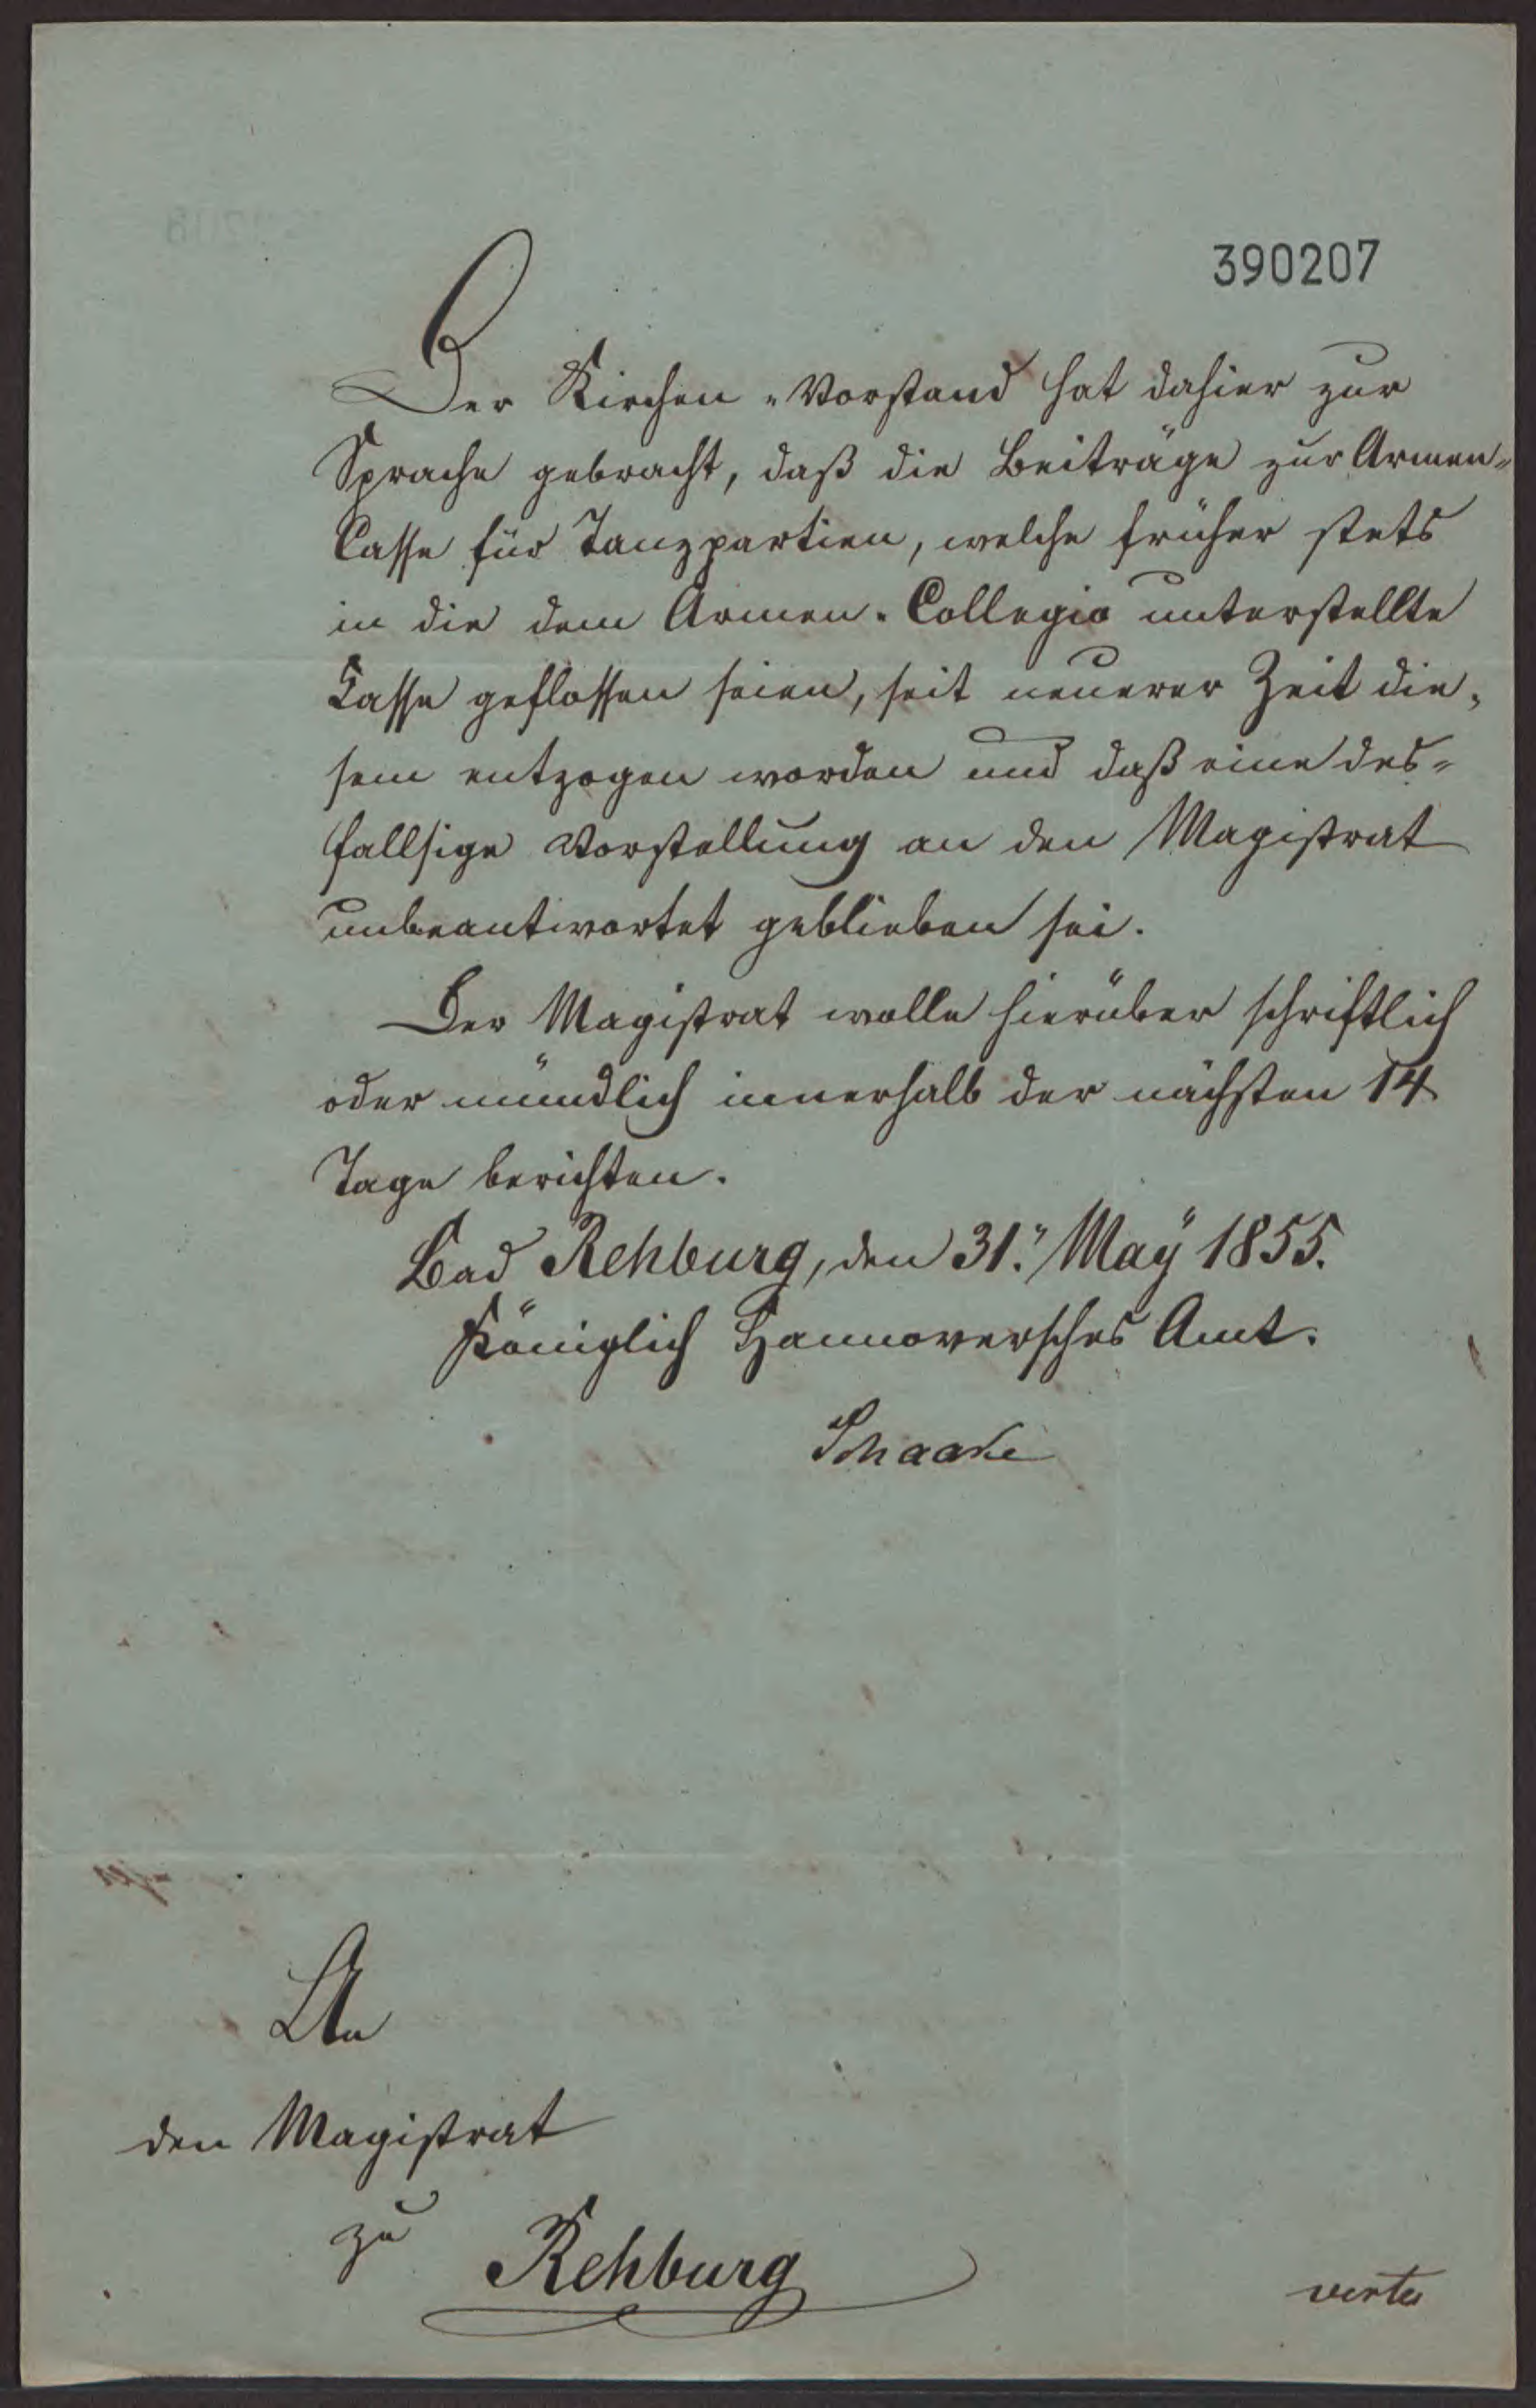 390207
Der Kirchen-Vorstand hat dahier zur
Sprache gebracht, daß die Beiträge zur Armen-
Casse für Tanzpartien, welche früher stets
in die dem Armen-Collegio unterstellte
Casse geflossen seien, seit neuerer Zeit die-
sem entzogen worden und daß eine des-
fallsige Vorstellung an den Magistrat
unbeantwortet geblieben sei.
Der Magistrat wolle hierüber schriftlich
oder mündlich innerhalb der nächsten 14
Tage berichten.
Bad Rehburg, den 31. May 1855.
Königlich Hannoversches Amt.
Schaake
An
den Magistrat
zu Rehburg
verte